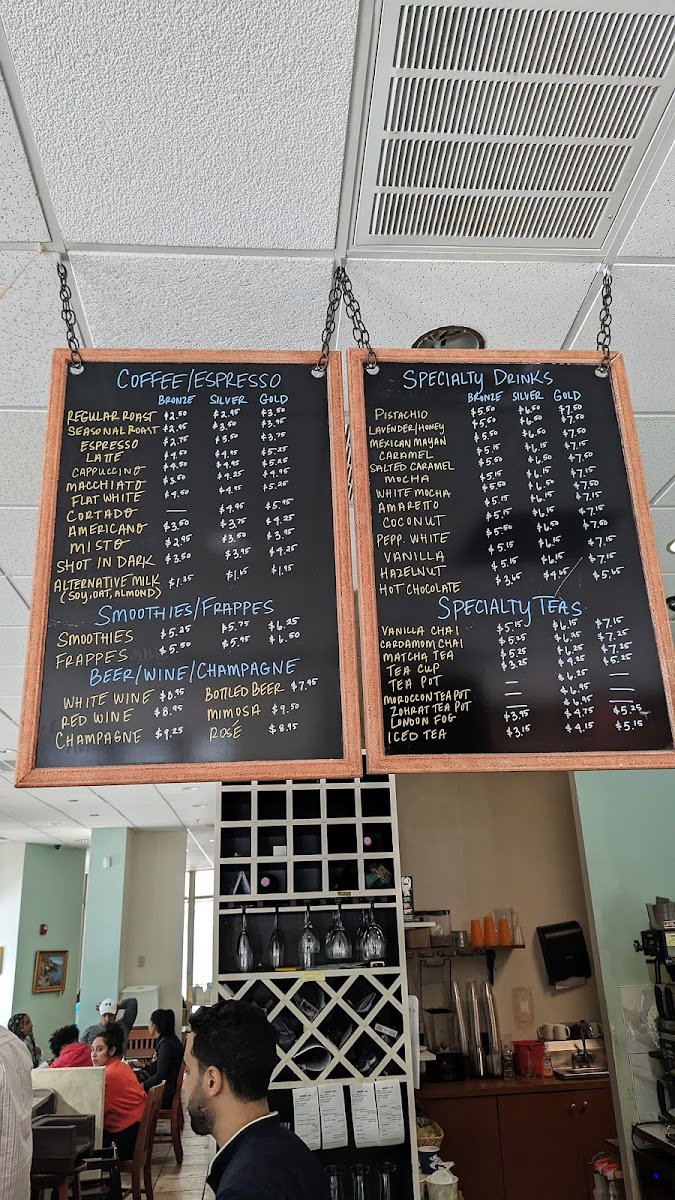 COFFEE/ESPRESSO
BRONZE SILVER GOLD
REGULAR ROAST $2.50 $2.95 $3.50
SEASONAL ROAST $2.95 $3.50 $3.95
ESPRESSO $2.75 $3.50 $3.75
LATTE $4.50 $4.95 $5.25
CAPPUCCINO $4.50 $4.95 $5.25
MACCHIATO $3.50 $4.25 $4.95
FLAT WHITE $4.50 $4.95 $5.25
CORTADO — $4.95 $5.95
AMERICANO $3.50 $3.75 $4.25
MISTO $2.95 $3.50 $3.95
SHOT IN DARK $3.50 $3.95 $4.25
ALTERNATIVE MILK $1.25 $1.65 $1.95
(SOY, OAT, ALMOND)
SMOOTHIES/FRAPPES
SMOOTHIES $5.25 $5.75 $6.25
FRAPPES $5.50 $5.95 $6.50
BEER/WINE/CHAMPAGNE
WHITE WINE $8.95 BOTTLED BEER $7.95
RED WINE $8.95 MIMOSA $9.50
CHAMPAGNE $9.25 ROSÉ $8.95
SPECIALTY DRINKS
BRONZE SILVER GOLD
PISTACHIO $5.50 $6.50 $7.50
LAVENDER/HONEY $5.50 $6.50 $7.50
MEXICAN MAYAN $5.50 $6.50 $7.50
CARAMEL $5.15 $6.15 $7.15
SALTED CARAMEL $5.50 $6.50 $7.50
MOCHA $5.15 $6.15 $7.15
WHITE MOCHA $5.50 $6.50 $7.50
AMARETTO $5.15 $6.15 $7.15
COCONUT $5.15 $6.15 $7.15
PEPP. WHITE $5.50 $6.50 $7.50
VANILLA $5.15 $6.15 $7.15
HAZELNUT $5.15 $6.15 $7.15
HOT CHOCOLATE $3.65 $4.65 $5.65
SPECIALTY TEAS
VANILLA CHAI $5.15 $6.15 $7.15
CARDAMOM CHAI $5.25 $6.25 $7.25
MATCHA TEA $5.25 $6.25 $7.25
TEA CUP $3.25 $4.25 $5.25
TEA POT — $6.25 —
MOROCCON TEA POT — $6.95 —
ZOHRAT TEA POT — $6.95 —
LONDON FOG $3.95 $4.75 $5.25
ICED TEA $3.15 $4.15 $5.15